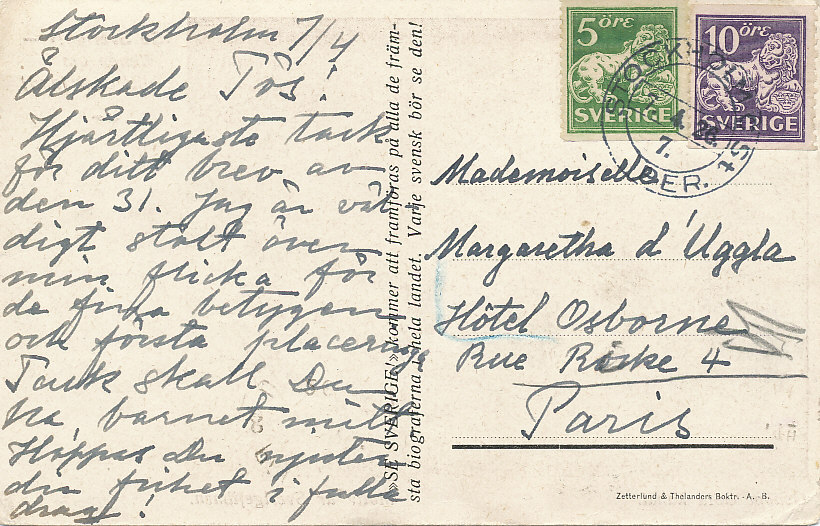 Stockholm 7/4
Älskade Tös!
Hjärtligaste tack
för ditt brev av
den 31. Jag är väl-
digt stolt över
min flicka för
de fina betygen
och första placering
Tack skall Du
ha, barnet mitt
Hoppas Du njuter
din frihet i fulla
drag!
»SE SVERIGE!» kommer att framföras på alla de främ-
sta biograferna i hela landet. Varje svensk bör se den!
5 ÖRE
SVERIGE
10 ÖRE
SVERIGE
STOCKHOLM
7. 4.
AVGÅENDE
Mademoiselle
Margaretha d'Uggla
Hôtel Osborne
Rue 4
Paris
Zetterlund & Thelanders Boktr. -A. -B.